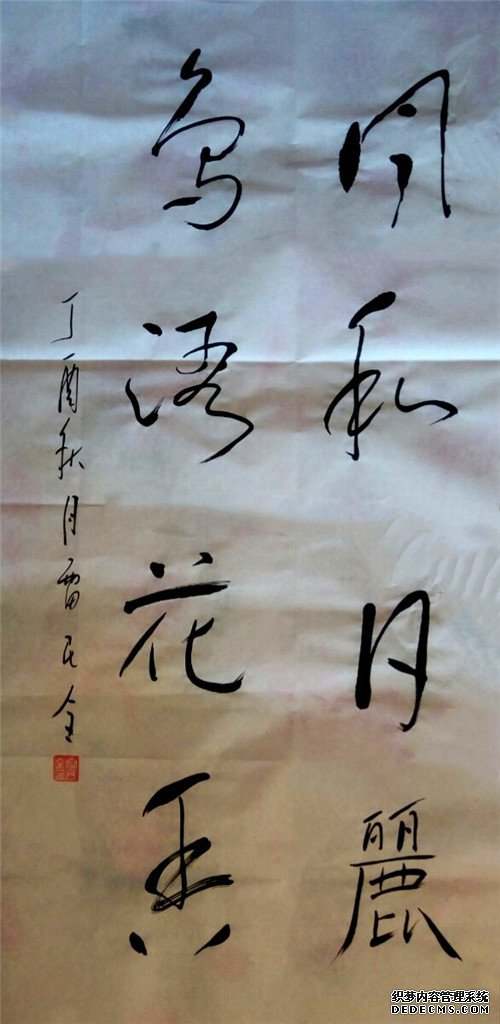 风和日麗
鸟语花香
丁酉秋月雷民全
织梦内容管理系统
DEDECMS.COM